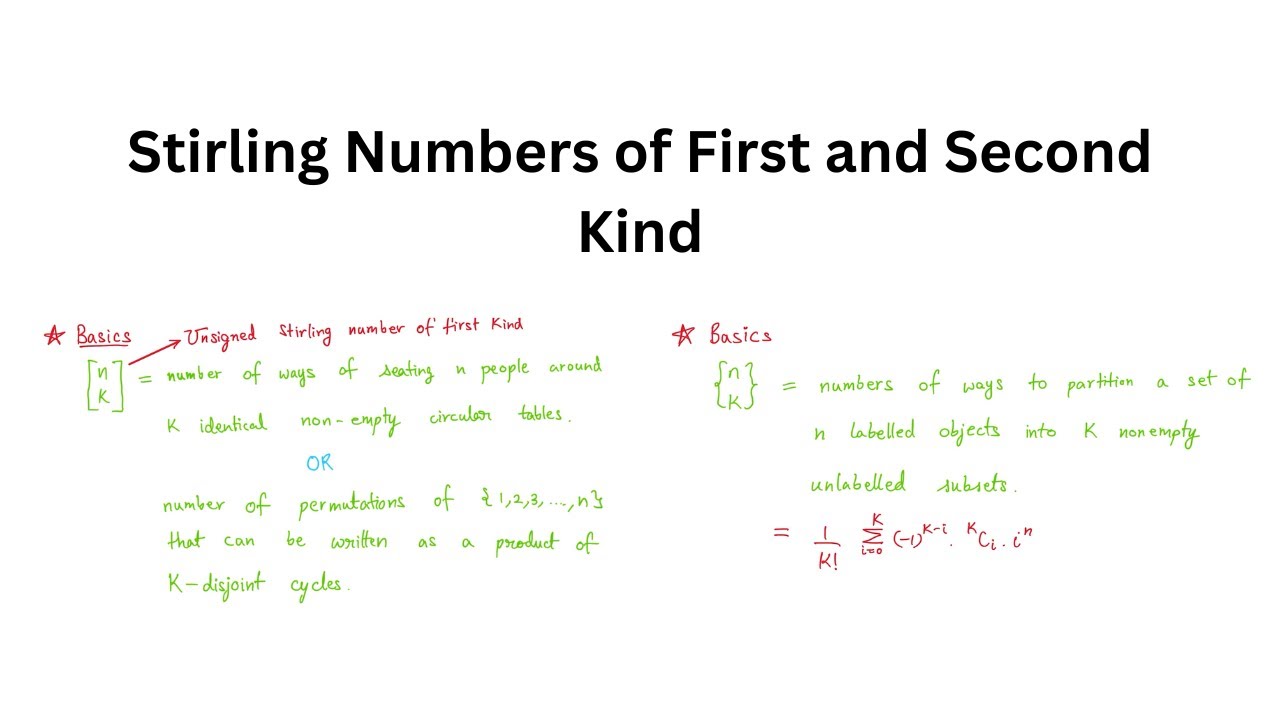 Stirling Numbers of First and Second
Kind
☆ Basics → Unsigned Stirling number of first Kind
[n K] = number of ways of seating n people around
K identical non-empty circular tables.
OR
number of permutations of {1,2,3,...,n}
that can be written as a product of
K-disjoint cycles.
☆ Basics
{n K} = numbers of ways to partition a set of
n labelled objects into K nonempty
unlabelled subsets.
= 1/K! ∑_{i=0}^{K} (-1)^{K-i} . ^{K}C_{i} . i^{n}